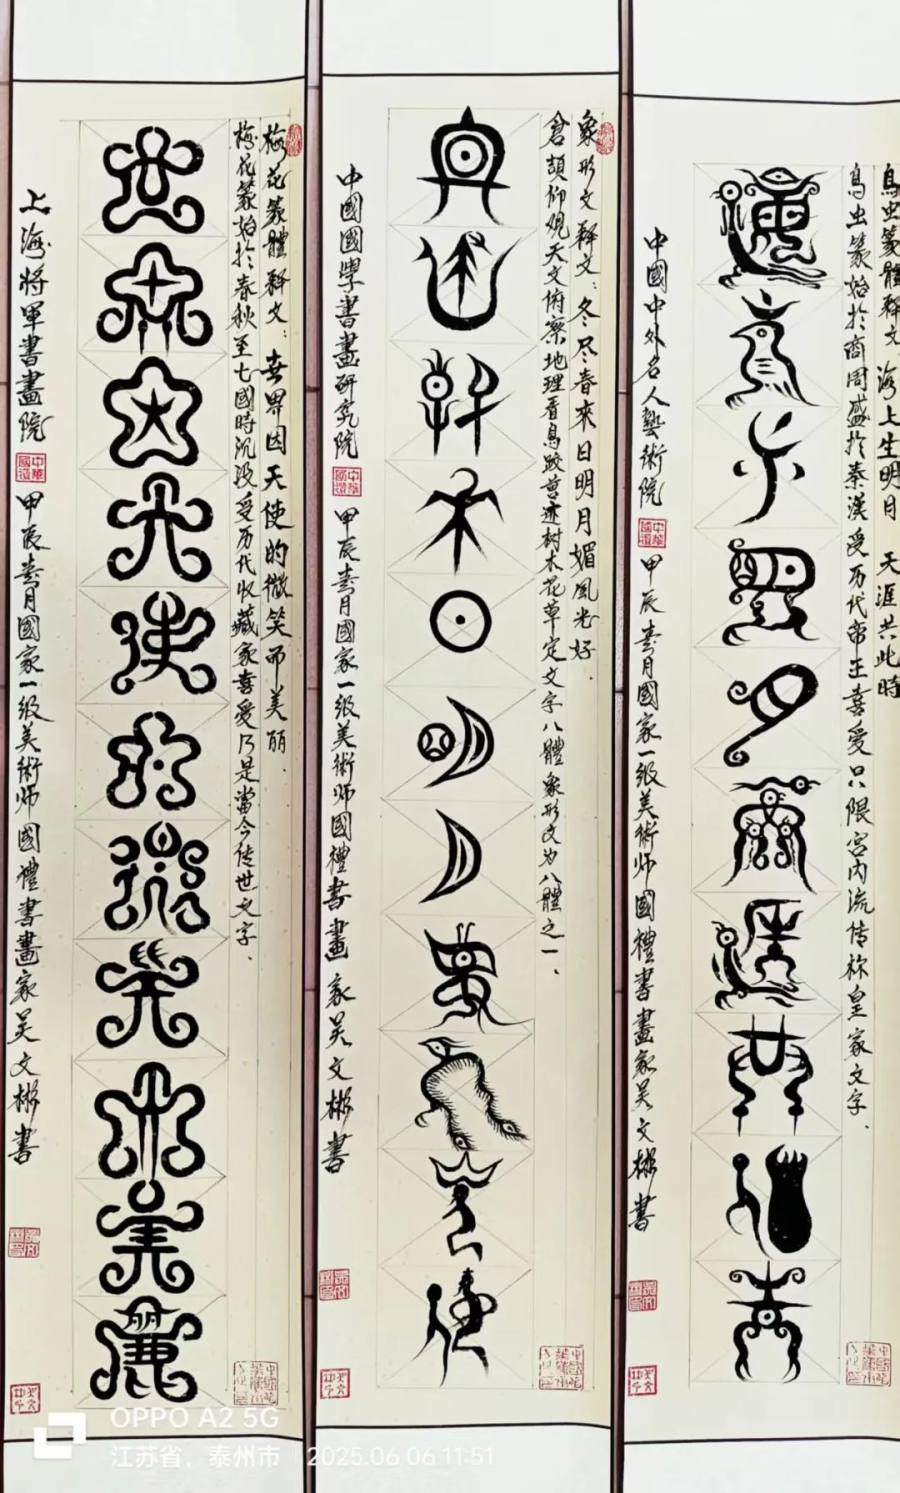 鳥虫篆體释文 海上生明月 天涯共此時
鳥虫篆始於商周盛於秦漢受历代帝王喜爱只限宫内流传称皇家文字.
中國中外名人藝術院
甲辰春月國家一级美術师國禮書畫家吴文彬書
象形文释文:冬尽春來日明月媚風光好.
倉頡仰观天文俯察地理看鳥跡兽迹树木花草定文字八體象形文为八體之一、
中國國學書畫研究院
甲辰春月國家一级美術师國禮書畫家吴文彬書
梅花篆體释文:世界因天使的微笑而美丽.
梅花篆始於春秋至七國時沉没受历代收藏家喜愛乃是當今传世文字.
世界因天使的微笑而美麗
上海将軍書畫院
甲辰春月國家一级美術师國禮書畫家吴文彬書
OPPO A2 5G
江苏省、泰州市 2025.06.06 11:51